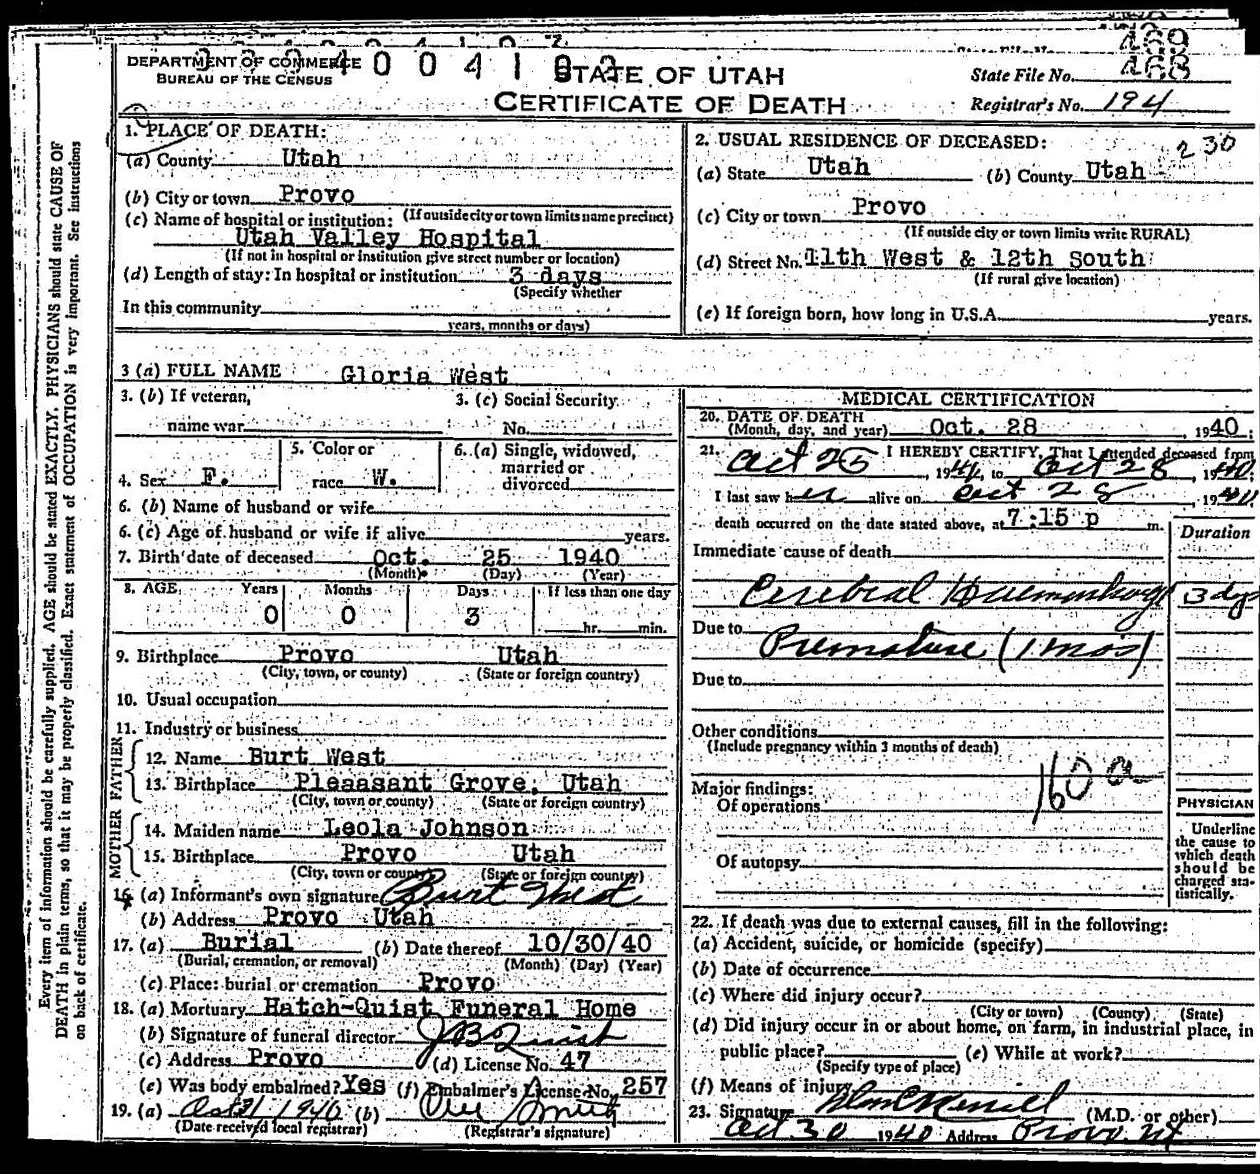 469
State File No.
DEPARTMENT OF COMMERCE
BUREAU OF THE CENSUS
STATE OF UTAH
CERTIFICATE OF DEATH
State File No. 468
Registrar's No. 194
Every item of information should be carefully supplied. AGE should be stated EXACTLY. PHYSICIANS should state CAUSE OF
DEATH in plain terms, so that it may be properly classified. Exact statement of OCCUPATION is very important. See instructions
on back of certificate.
1. PLACE OF DEATH:
(a) County Utah
(b) City or town Provo
(c) Name of hospital or institution: (If outside city or town limits name precinct)
Utah Valley Hospital
(If not in hospital or institution give street number or location)
(d) Length of stay: In hospital or institution 3 days
(Specify whether
In this community
years, months or days)
2. USUAL RESIDENCE OF DECEASED: 230
(a) State Utah (b) County Utah
(c) City or town Provo
(If outside city or town limits write RURAL)
(d) Street No. 11th West & 12th South
(If rural give location)
(e) If foreign born, how long in U.S.A. years.
3 (a) FULL NAME Gloria West
3. (b) If veteran,
name war
3. (c) Social Security
No.
4. Sex F.
5. Color or
race W.
6. (a) Single, widowed,
married or
divorced
6. (b) Name of husband or wife
6. (c) Age of husband or wife if alive years.
7. Birth date of deceased Oct. 25 1940
(Month) (Day) (Year)
8. AGE Years Months Days If less than one day
0 0 3 hr. min.
9. Birthplace Provo Utah
(City, town, or county) (State or foreign country)
10. Usual occupation
11. Industry or business
FATHER
12. Name Burt West
13. Birthplace Pleaasant Grove, Utah
(City, town or county) (State or foreign country)
MOTHER
14. Maiden name Leola Johnson
15. Birthplace Provo Utah
(City, town or county) (State or foreign country)
16. (a) Informant's own signature Burt West
(b) Address Provo Utah
17. (a) Burial (b) Date thereof 10/30/40
(Burial, cremation, or removal) (Month) (Day) (Year)
(c) Place: burial or cremation Provo
18. (a) Mortuary Hatch-Quist Funeral Home
(b) Signature of funeral director J B Quist
(c) Address Provo (d) License No. 47
(e) Was body embalmed? Yes (f) Embalmer's License No. 257
19. (a) Oct 31 1940 (b)
(Date received local registrar) (Registrar's signature)
MEDICAL CERTIFICATION
20. DATE OF DEATH
(Month, day, and year) Oct. 28 , 1940;
21. I HEREBY CERTIFY, That I attended deceased from
Oct 25 , 1940, to Oct 28 , 1940;
I last saw her alive on Oct 28 1940
death occurred on the date stated above, at 7:15 p m.
Duration
Immediate cause of death
Cerebral Haemorrhage 3 dys
Due to Premature (1 mos)
Due to
Other conditions
(Include pregnancy within 3 months of death)
160 a
Major findings:
Of operations
Of autopsy
PHYSICIAN
Underline
the cause to
which death
should be
charged sta-
tistically.
22. If death was due to external causes, fill in the following:
(a) Accident, suicide, or homicide (specify)
(b) Date of occurrence
(c) Where did injury occur?
(City or town) (County) (State)
(d) Did injury occur in or about home, on farm, in industrial place, in
public place? (e) While at work?
(Specify type of place)
(f) Means of injury
23. Signature (M.D. or other)
Oct 30 1940 Address Provo Ut